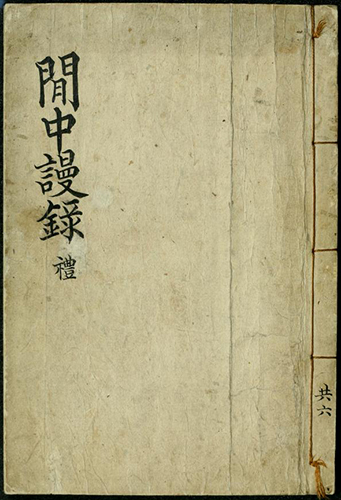 閒中謾錄
禮
共六